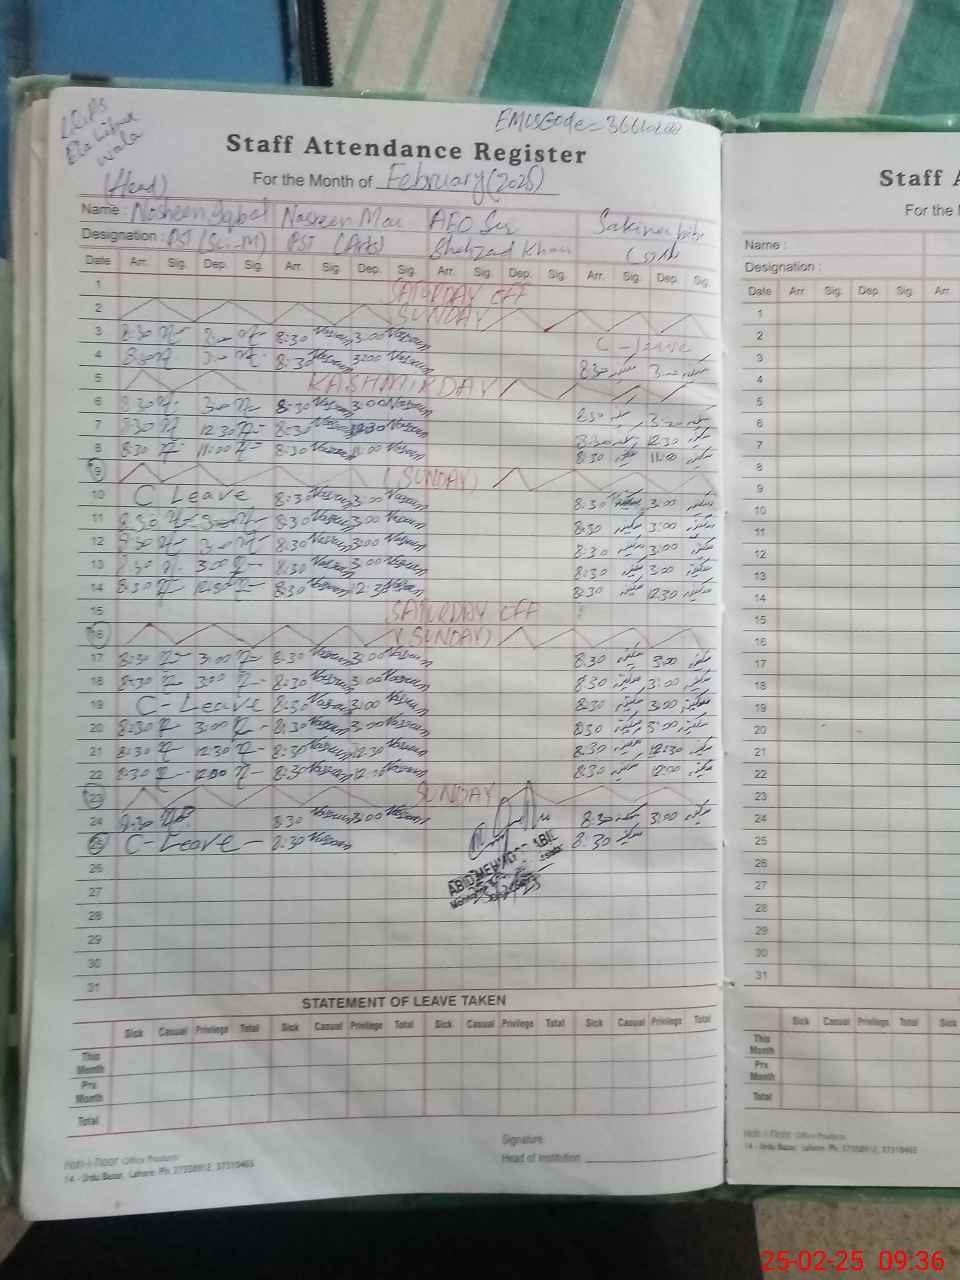 EMIS Code = 
Staff Attendance Register
For the Month of February (2025)
(Head)
Name : Nosheen Iqbal Nasreen AEO Sir Sakina bibi
Designation : PST (Sci-M) PST (Arts) Shehzad Khan
Date Arr. Sig. Dep. Sig. Arr. Sig. Dep. Sig. Arr. Sig. Dep. Sig. Arr. Sig. Dep. Sig.
1 SATURDAY OFF
2 SUNDAY
3 8:30 8:30 Nasreen 3:00 Nasreen C-leave
4 8:30 Nasreen 3:00 Nasreen 8:30 سکینہ سکینہ
5 KASHMIR DAY
6 8:30 3:00 8:30 Nasreen 3:00 Nasreen 8:30 سکینہ 3:00 سکینہ
7 8:30 12:30 8:30 Nasreen 12:30 Nasreen 8:30 سکینہ 12:30 سکینہ
8 8:30 11:00 8:30 Nasreen 11:00 Nasreen 8:30 سکینہ 11:00 سکینہ
9 (SUNDAY)
10 C Leave 8:30 Nasreen 3:00 Nasreen 8:30 سکینہ 3:00 سکینہ
11 8:30 8:30 Nasreen 3:00 Nasreen 8:30 سکینہ 3:00 سکینہ
12 8:30 3:00 8:30 Nasreen 3:00 Nasreen 8:30 سکینہ 3:00 سکینہ
13 8:30 3:00 8:30 Nasreen 3:00 Nasreen 8:30 سکینہ 3:00 سکینہ
14 8:30 12:30 8:30 Nasreen 12:30 Nasreen 8:30 سکینہ 12:30 سکینہ
15 SATURDAY OFF
16 (SUNDAY)
17 8:30 3:00 8:30 Nasreen 3:00 Nasreen 8:30 سکینہ 3:00 سکینہ
18 8:30 3:00 8:30 Nasreen 3:00 Nasreen 8:30 سکینہ 3:00 سکینہ
19 C-Leave 8:30 Nasreen 3:00 Nasreen 8:30 سکینہ 3:00 سکینہ
20 8:30 3:00 8:30 Nasreen 3:00 Nasreen 8:30 سکینہ 3:00 سکینہ
21 8:30 12:30 8:30 Nasreen 12:30 Nasreen 8:30 سکینہ 12:30 سکینہ
22 8:30 12:00 8:30 Nasreen Nasreen 8:30 سکینہ 12:00 سکینہ
23 SUNDAY
24 8:30 8:30 Nasreen 3:00 Nasreen 8:30 سکینہ 3:00 سکینہ
25 C-Leave 8:30 Nasreen 8:30 سکینہ
26
27
28
29
30
31
STATEMENT OF LEAVE TAKEN
Sick Casual Privilege Total Sick Casual Privilege Total Sick Casual Privilege Total Sick Casual Privilege Total
This Month
Prv. Month
Total
Signature
Head of Institution
(Office Products)
14 - Urdu Bazar, Lahore. Ph: 37358912, 37310465
Staff A
For the
Name :
Designation :
Date Arr. Sig. Dep. Sig. Arr.
1
2
3
4
5
6
7
8
9
10
11
12
13
14
15
16
17
18
19
20
21
22
23
24
25
26
27
28
29
30
31
Sick Casual Privilege Total Sick
This Month
Prv. Month
Total
(Office Products)
14 - Urdu Bazar, Lahore. Ph: 37358912, 37310465
25-02-25 09:36